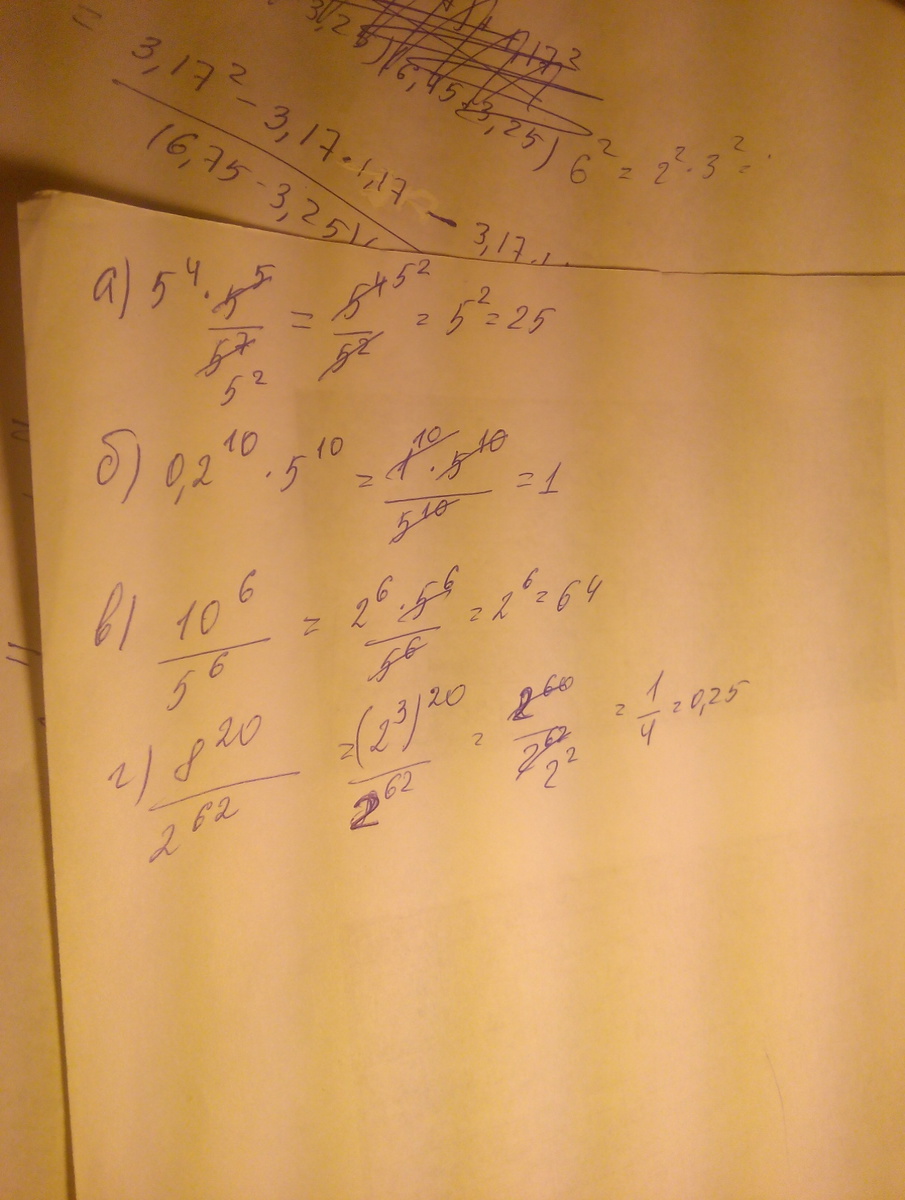 = 3,17² - 3,17 · 1,17 - 3,17
(6,75 - 3,25)
3,25)(6,45 + 3,25)
6² = 2² · 3² =
а) 5⁴ · 5⁵/5⁷ 5² = 5⁴ 5²/5² = 5² = 25
б) 0,2¹⁰ · 5¹⁰ = 1¹⁰ · 5¹⁰/5¹⁰ = 1
в) 10⁶/5⁶ = 2⁶ · 5⁶/5⁶ = 2⁶ = 64
г) 8²⁰/2⁶² = (2³)²⁰/2⁶² = 2⁶⁰/2⁶² 2² = 1/4 = 0,25